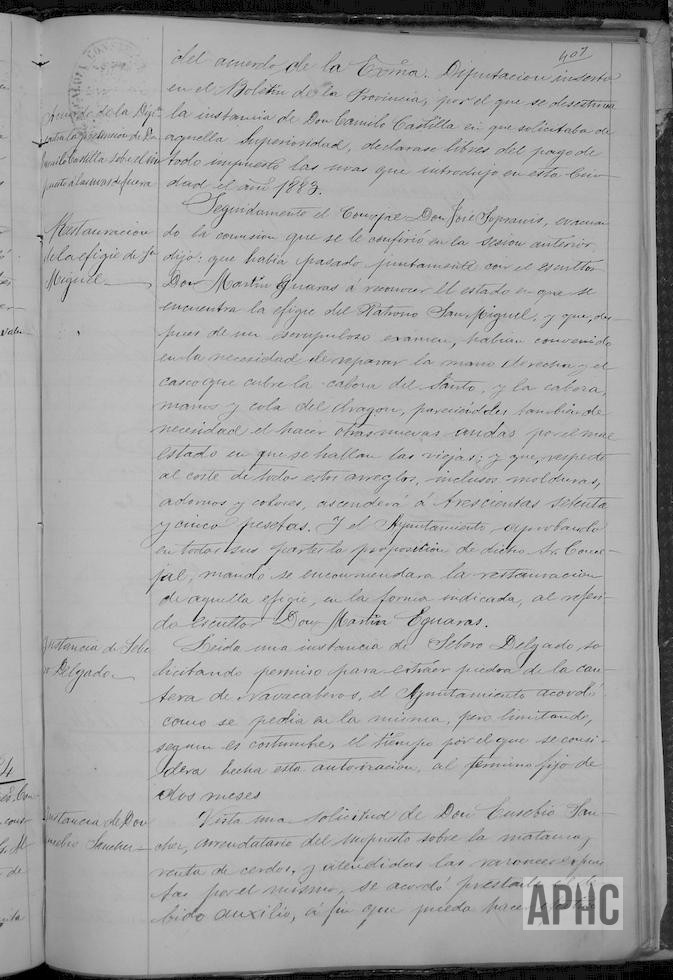 407
del acuerdo de la Exma. Diputacion inserto
en el Boletin de la Provincia, por el que se desestima
la instancia de Don Camilo Castilla en que solicitaba de
aquella Superioridad, declarase libres del pago de
todo impuesto las uvas que introdujo en esta Ciu-
dad el año 1883.
Acuerdo de la Dipon
contra la pretension de Dn
Camilo Castilla sobre el im-
puesto á las uvas de fuera
Seguidamente el Concejal Don José Sopranis, evacuan
do la comision que se le confirió en la sesion anterior,
dijo: que habia pasado juntamente con el escultor
Don Martin Eguaras á reconocer el estado en que se
encuentra la efigie del Patrono San Miguel, y que, des-
pues de un escrupuloso examen, habian convenido
en la necesidad de reparar la mano derecha y el
casco que cubre la cabeza del Santo, y la cabeza,
manos y cola del dragon, pareciéndoles tambien de
necesidad el hacer otras nuevas andas por el mal
estado en que se hallan las viejas; y que, respecto
al coste de todos estos arreglos, inclusos molduras,
adornos y colores, ascenderá á trescientas setenta
y cinco pesetas. Y el Ayuntamiento aprobando
en todas sus partes la proposicion de dicho Sr. Conce-
jal, mandó se encomendara la restauracion
de aquella efigie, en la forma indicada, al referi-
do escultor Don Martin Eguaras.
Restauracion
de la efigie de Sn
Miguel
Leida una instancia de Sebero Delgado, so
licitando permiso para extraer piedra de la can-
tera de Navacaberos, el Ayuntamiento acordó
como se pedia en la misma, pero limitando,
segun es costumbre, el tiempo por el que se consi-
dera hecha esta autorizacion, al término fijo de
dos meses
Instancia de Sebe
ro Delgado
Vista una solicitud de Don Eusebio San-
chez, arrendatario del impuesto sobre la matanza y
venta de cerdos, y atendidas las razones espues
tas por el mismo, se acordó prestarle el de
bido auxilio, á fin que pueda hacer
Instancia de Don
Eusebio Sanchez
APHC